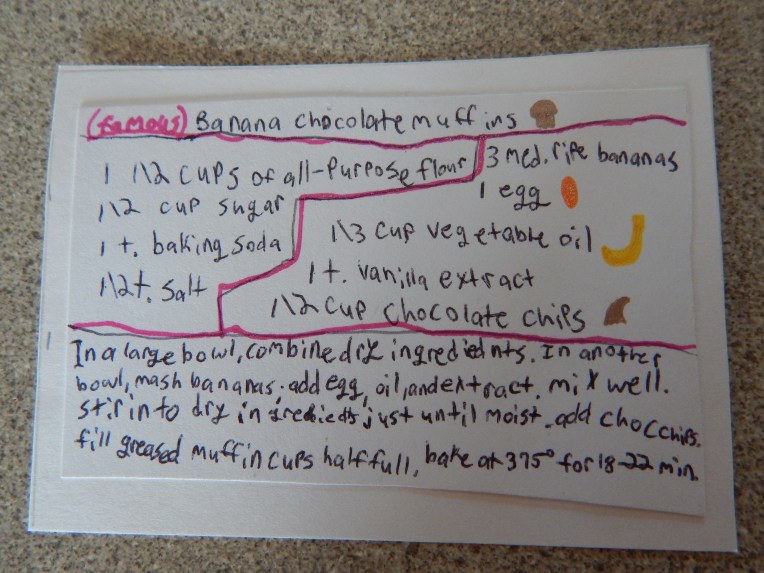 (famous) Banana chocolate muffins
1 1\2 cups of all-purpose flour
1\2 cup sugar
1 t. baking soda
1\2 t. salt
3 med. ripe bananas
1 egg
1\3 cup vegetable oil
1 t. vanilla extract
1\2 cup chocolate chips
In a large bowl, combine dry ingredients. In another
bowl, mash bananas. add egg, oil, and extract. mix well.
stir in to dry ingrediedts just until moist. add choc chips.
fill greased muffin cups half full, bake at 375° for 18-22 min.